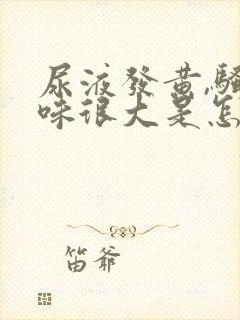 尿液發黃,騷
味很大是怎
笛爷